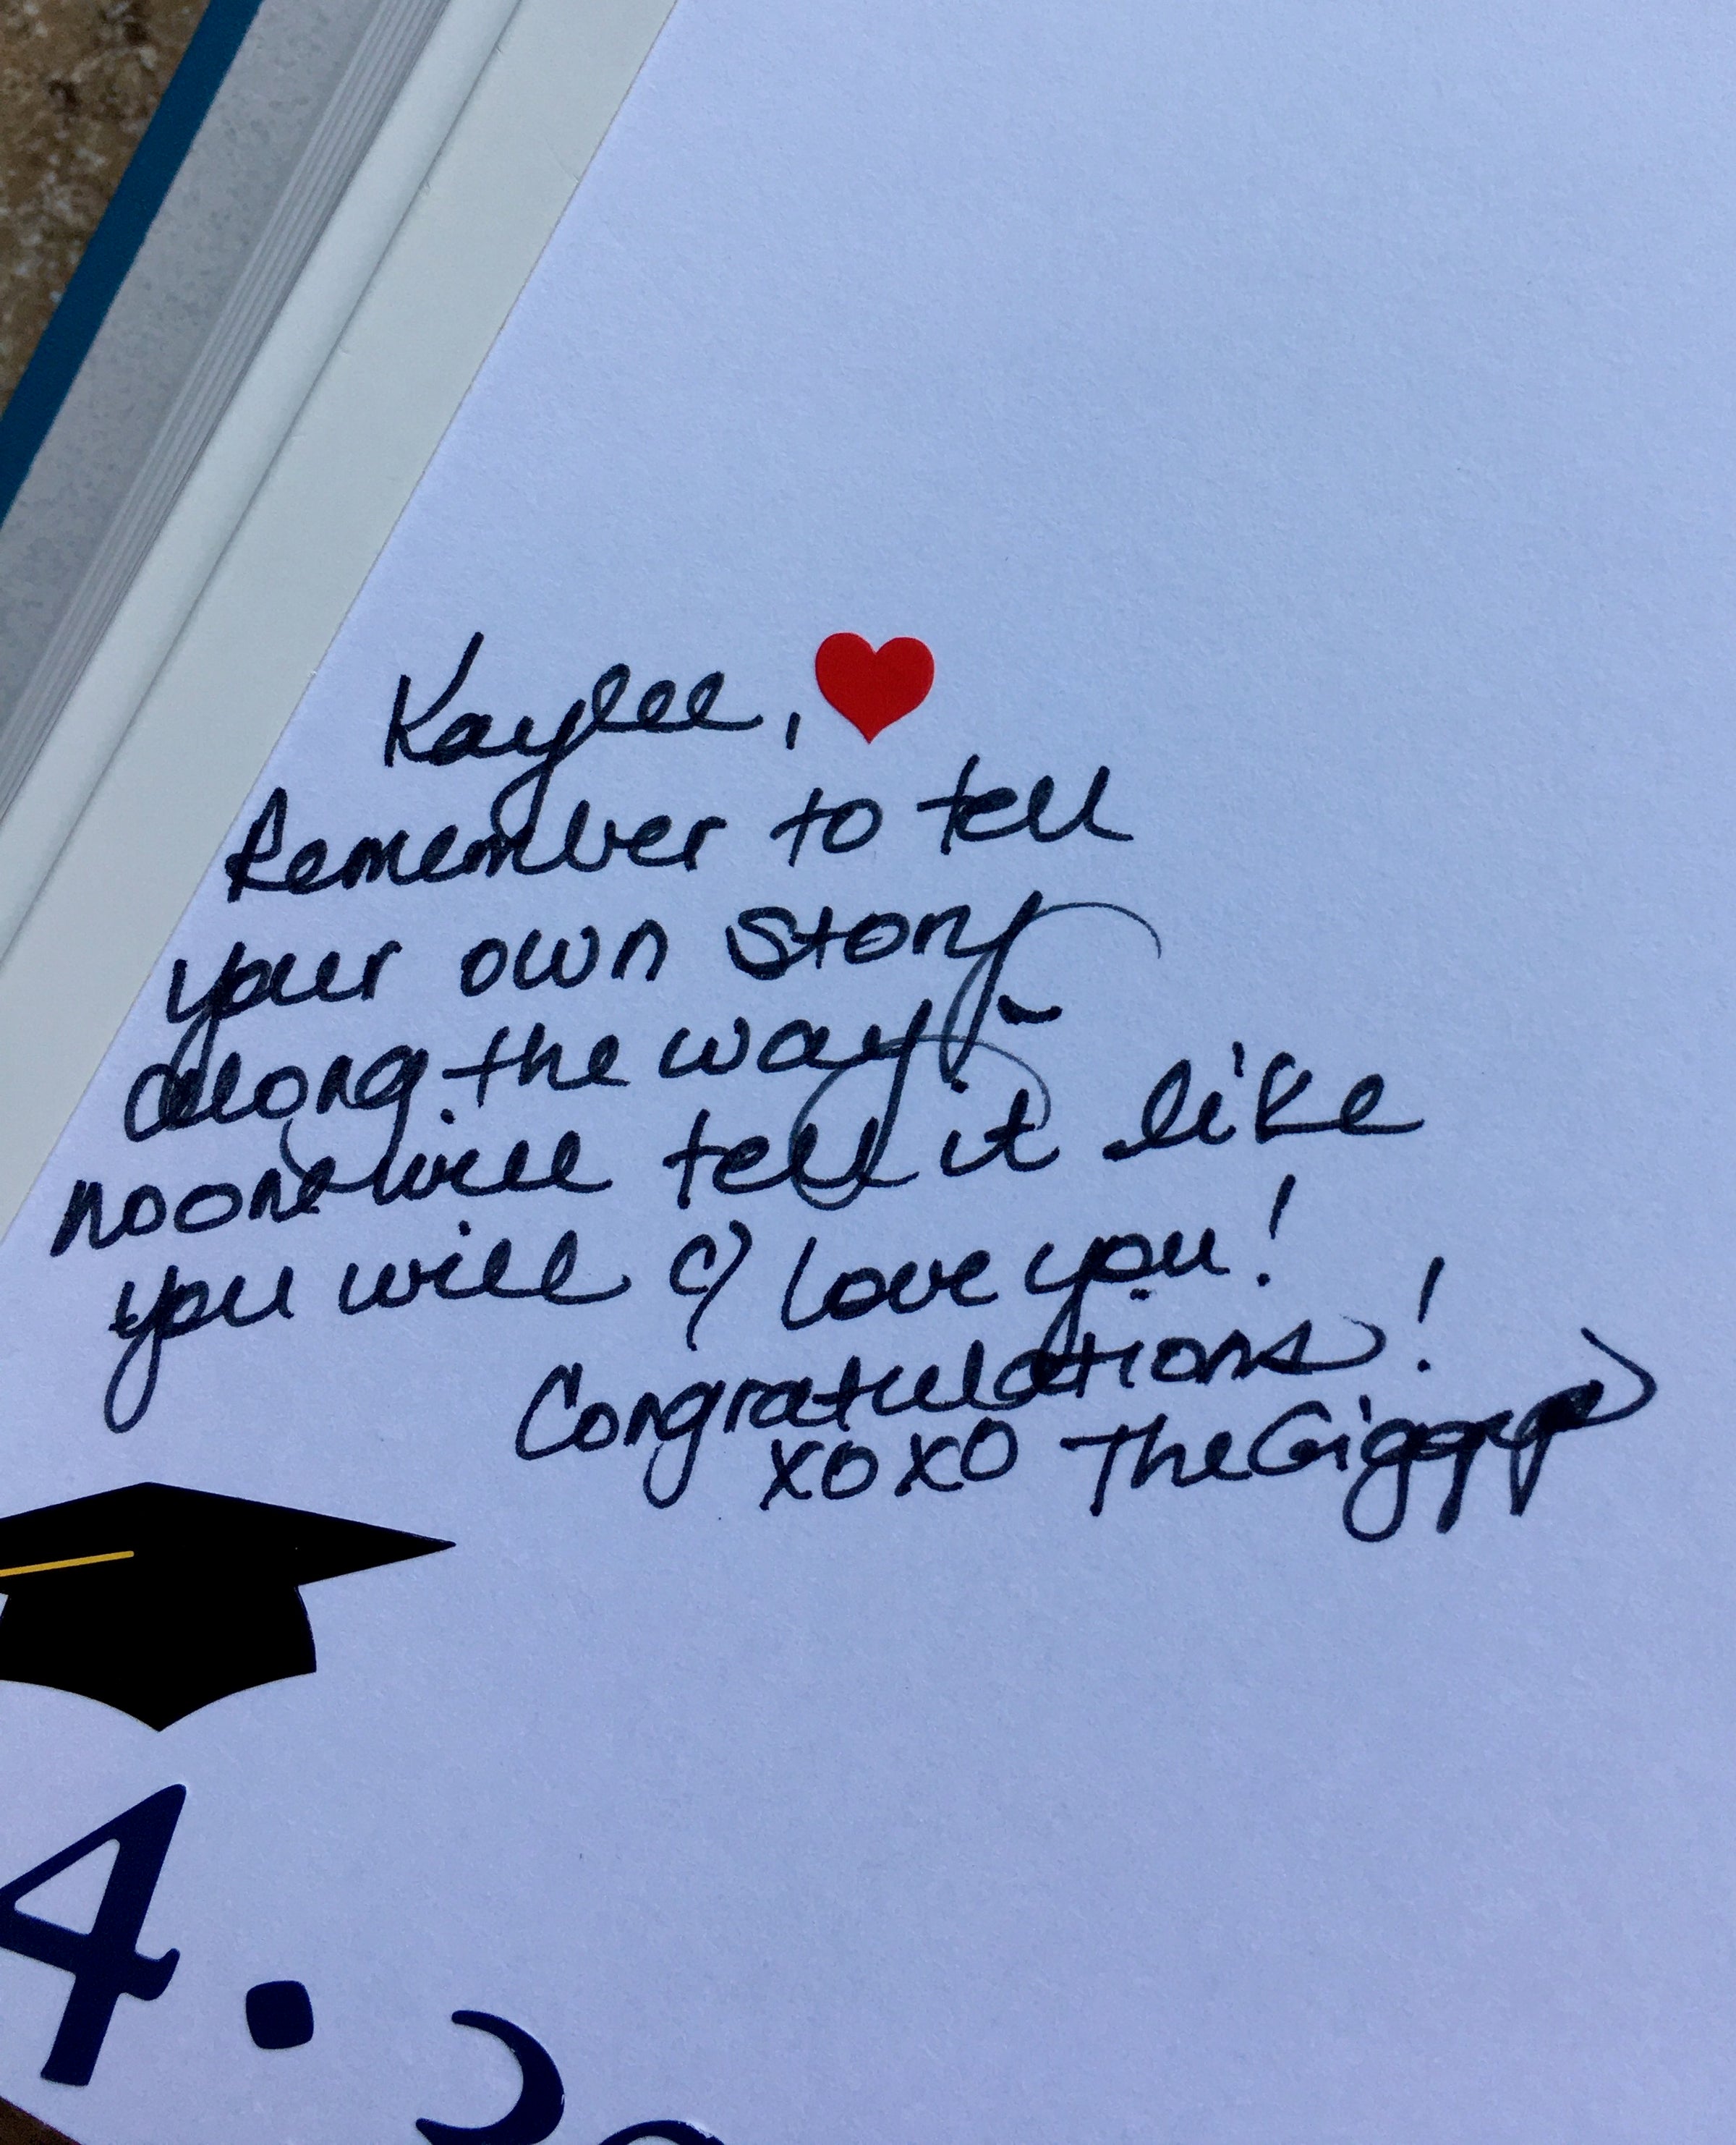 Kaylee,
Remember to tell
your own story
along the way-
noone will tell it like
you will & love you!
Congratulations!
xoxo The
4.